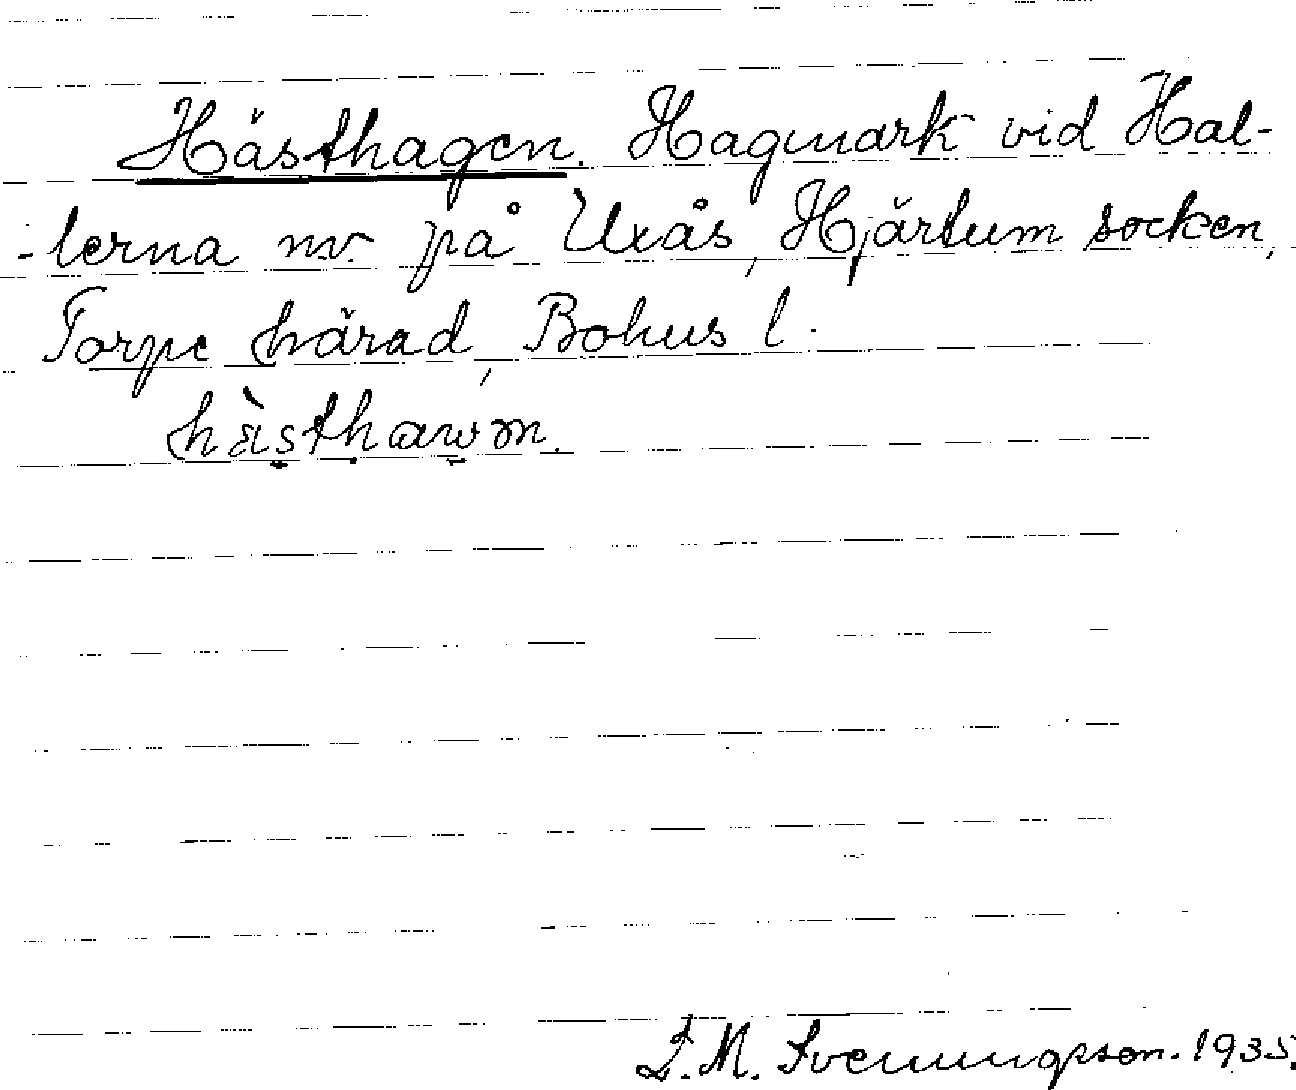 Hästhagen. Hagmark vid Hal-
-lerna nv. på Uxås, Hjärtum socken,
Torpe härad, Bohus l.
hàsthawən.
L. M. Svenungsson. 1935.